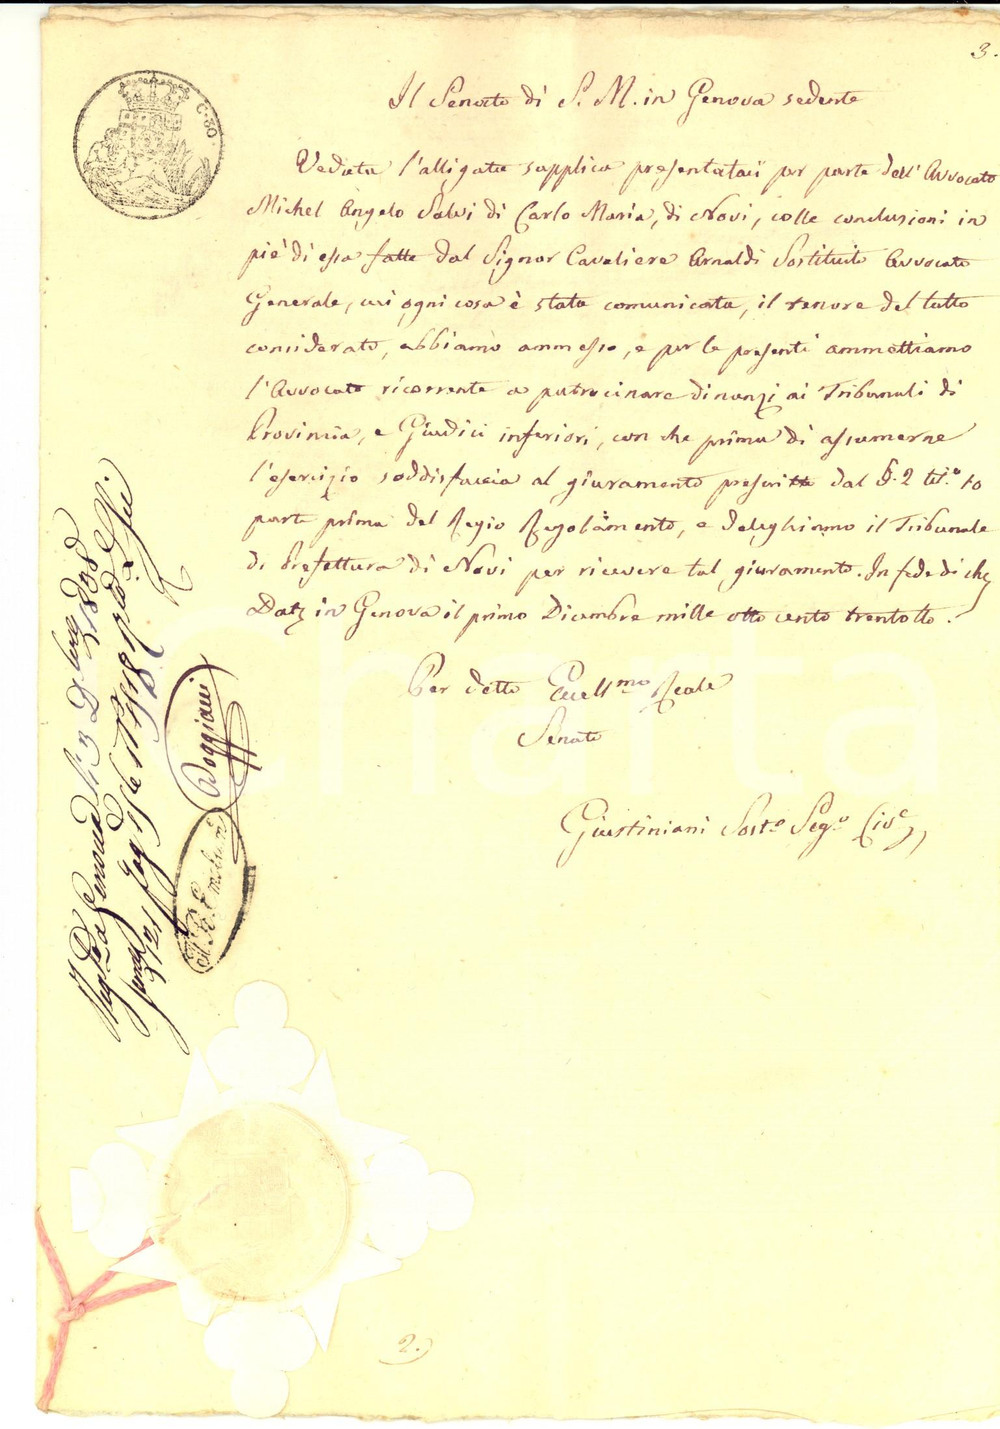 3.
C. 30
Il Senato di S. M. in Genova sedente
Veduta l'alligata supplica presentataci per parte dell'Avvocato
Michel Angelo Salvi di Carlo Maria, di Novi, colle conclusioni in
piè di essa fatte dal Signor Cavaliere Arnaldi Sostituito Avvocato
Generale, cui ogni cosa è stata comunicata, il tenore del tutto
considerato, abbiamo ammesso, e per le presenti ammettiamo
l'Avvocato ricorrente a patrocinare dinanzi ai Tribunali di
Provincia, e Giudici inferiori, con che prima di assumerne
l'esercizio soddisfaccia al giuramento prescritto dal §. 2 tit.º 10
parte prima del Regio Regolamento, e deleghiamo il Tribunale
di Prefettura di Novi per ricevere tal giuramento. In fede di che
Dat. in Genova il primo Dicembre mille otto cento trentotto.
Per detto Eccell.mo Reale
Senato
Giustiniani Sost.º Seg.º Civ.e
Genova
Boggiani
2.
charta